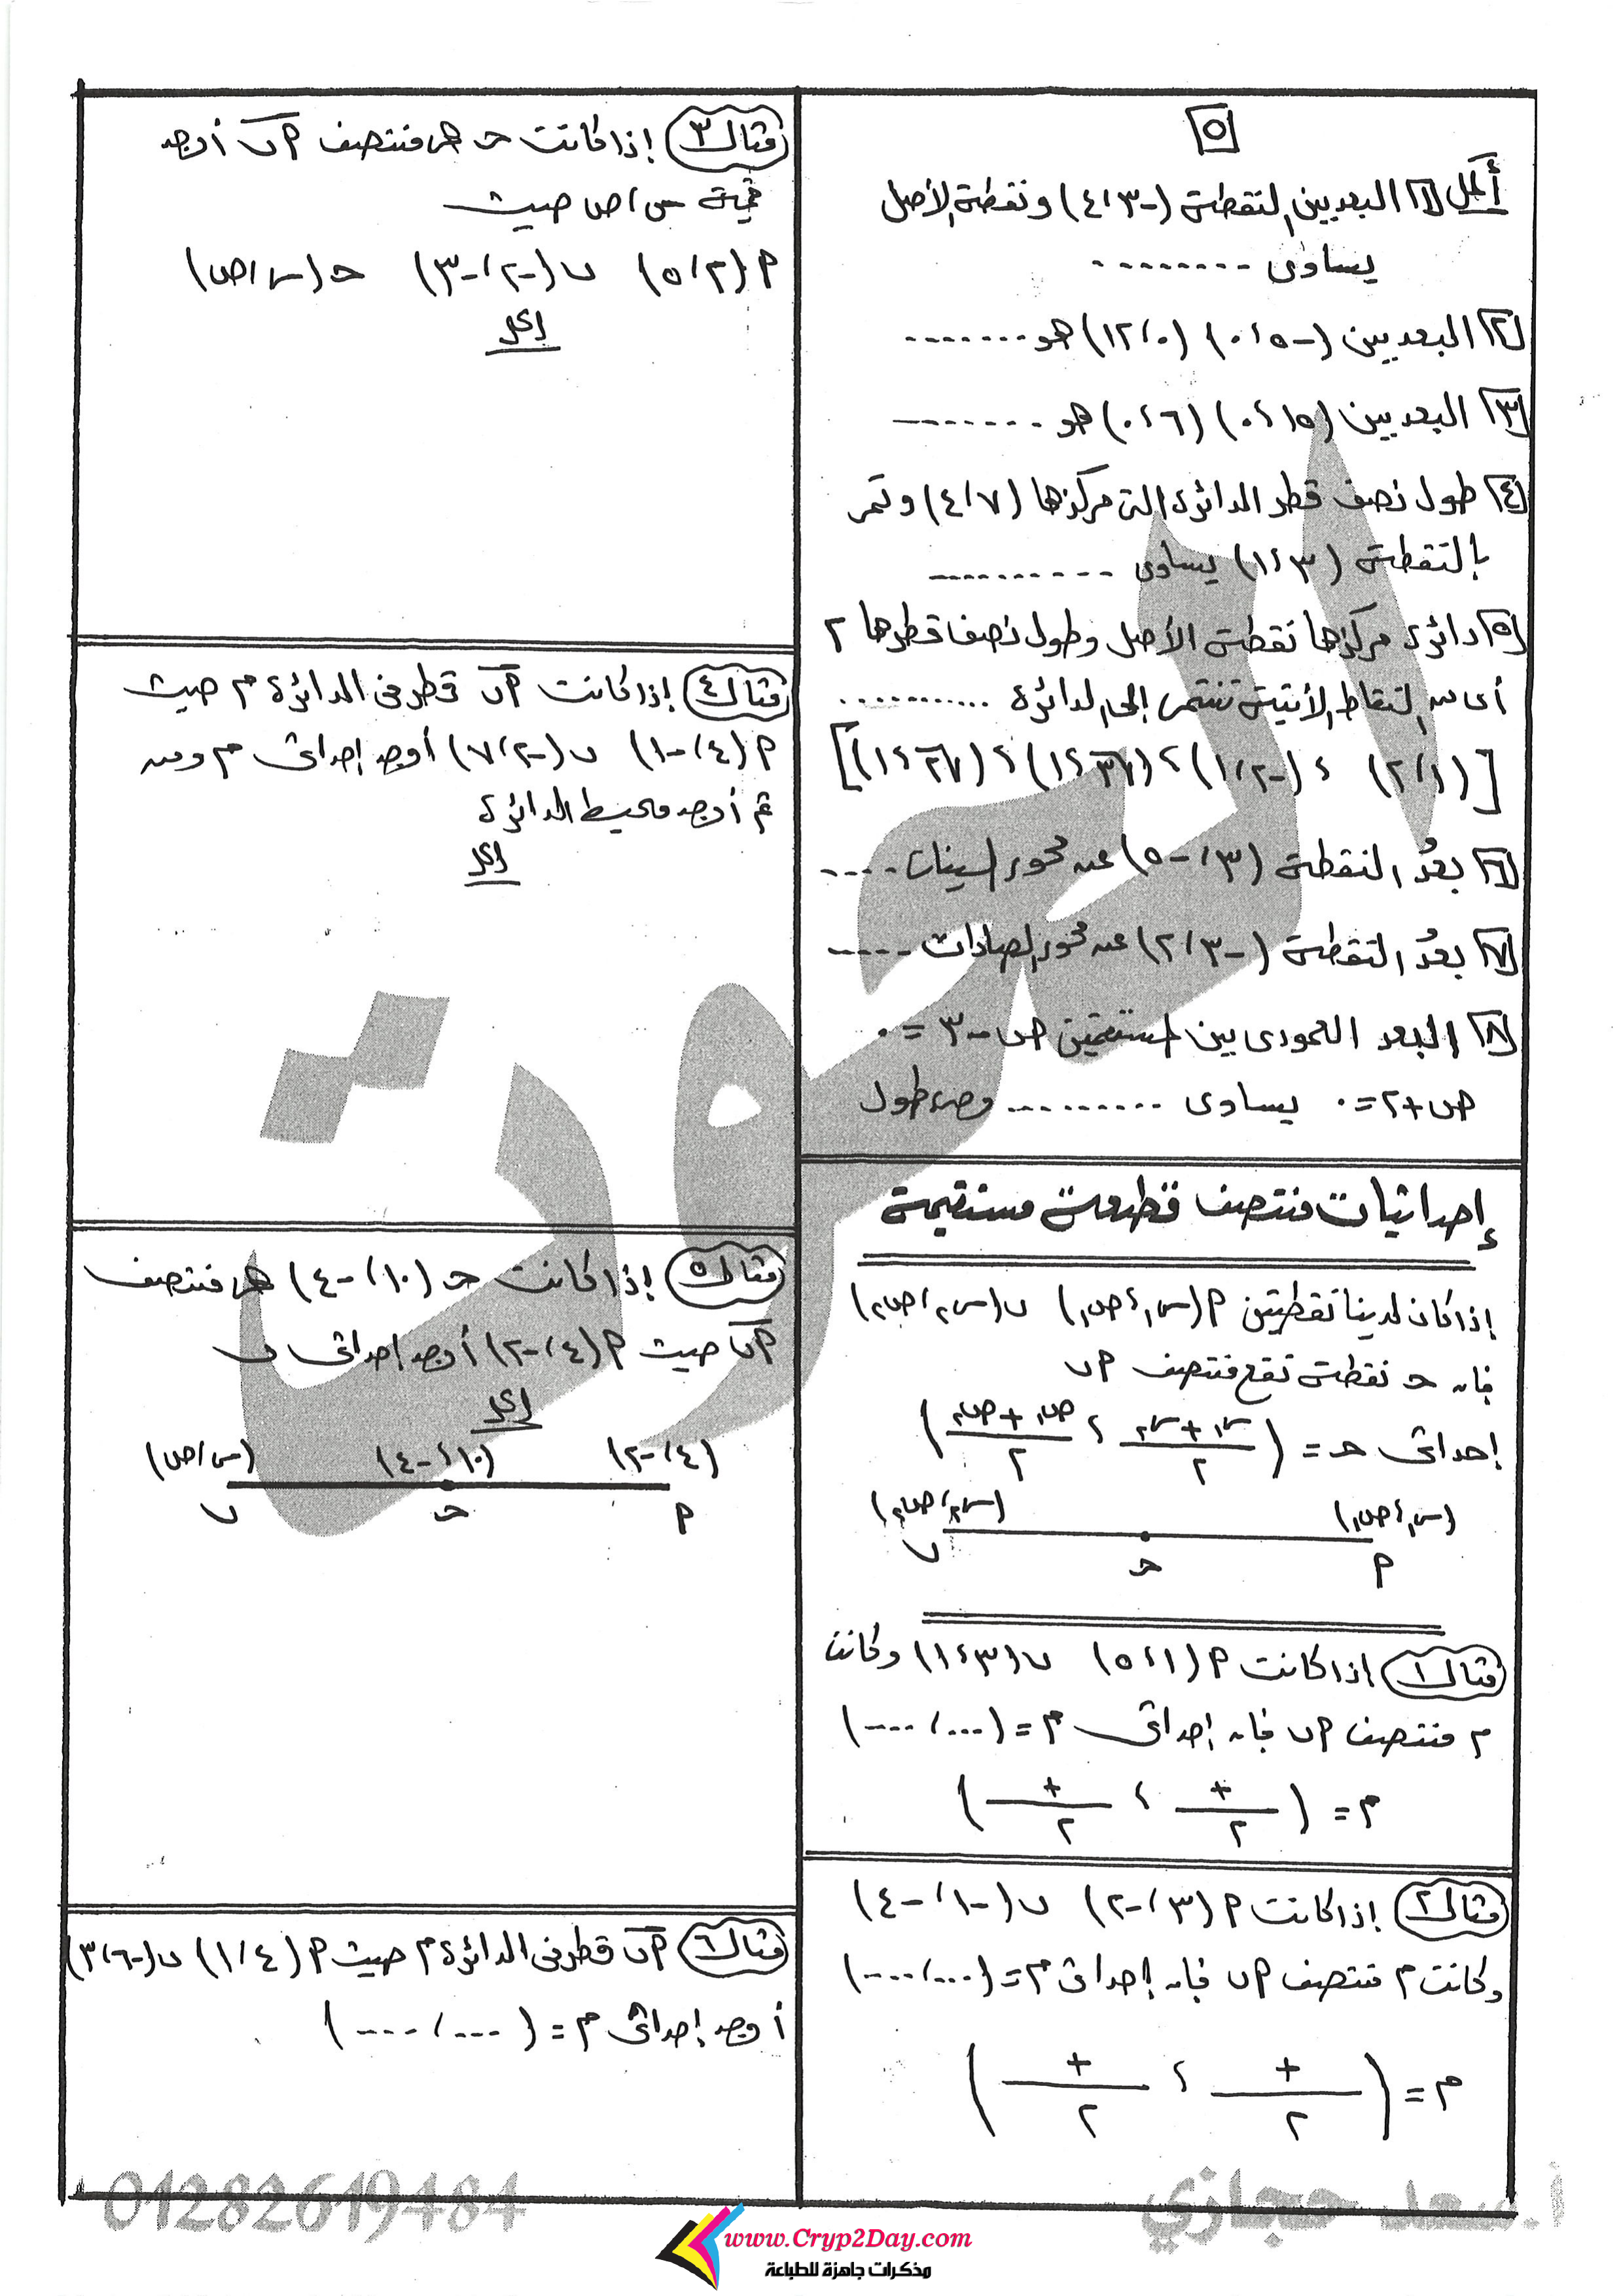 ٥
أكمل ١ البعد بين النقطة (-٣، ٤) ونقطة الأصل
يساوى ........
٢ البعد بين (-٥، ٠) (٠، ١٢) هو .......
٣ البعد بين (١٥، ٠) (٦، ٠) هو .......
٤ طول نصف قطر الدائرة التى مركزها (٧، ٤) وتمر
بالنقطة (٣، ١) يساوى ..........
٥ دائرة مركزها نقطة الأصل وطول نصف قطرها ٢
أى من النقاط الأتية تنتمى إلى الدائرة ...........
[(١، ٢) ، (-٢، ١) ، (√٣، ١) ، (√٢، ١)]
٦ بعدُ النقطة (٣، -٥) عن محور السينات .....
٧ بعدُ النقطة (-٣، ٢) عن محور الصادات .....
٨ البعد العمودى بين المستقيمين ص - ٣ = ٠
ص + ٢ = ٠ يساوى .......... وحدة طول
إحداثيات منتصف قطعة مستقيمة
إذا كان لدينا نقطتين P (س١، ص١) ب (س٢، ص٢)
فإن ح نقطة تقع منتصف P ب
إحداثى ح = (س١ + س٢ / ٢ ، ص١ + ص٢ / ٢)
(س١، ص١) (س٢، ص٢)
P ح ب
مثال ١ إذا كانت P (١، ٥) ب (٣، ١) وكانت
م منتصف P ب فإن إحداثى م = (....، ....)
م = (+ / ٢ ، + / ٢)
مثال ٢ إذا كانت P (٣، -٢) ب (-١، -٤)
وكانت م منتصف P ب فإن إحداثى م = (....، ....)
م = (+ / ٢ ، + / ٢)
مثال ٣ إذا كانت ح هى منتصف P ب أوجد
قيمة س، ص حيث
P (٢، ٥) ب (-٢، -٣) ح (س، ص)
الحل
مثال ٤ إذا كانت P ب قطر فى الدائرة م حيث
P (٤، -١) ب (-٢، ٧) أوجد إحداثى م ومن
ثم أوجد محيط الدائرة
الحل
مثال ٥ إذا كانت ح (١٠، -٤) هى منتصف
P ب حيث P (٤، -٢) أوجد إحداثى ب
الحل
(٤، -٢) (١٠، -٤) (س، ص)
P ح ب
مثال ٦ P ب قطر فى الدائرة م حيث P (٤، ١) ب (-٦، ٣)
أوجد إحداثى م = (....، ....)
أ.سعد حجازي
01282619484
www.Cryp2Day.com
مذكرات جاهزة للطباعة